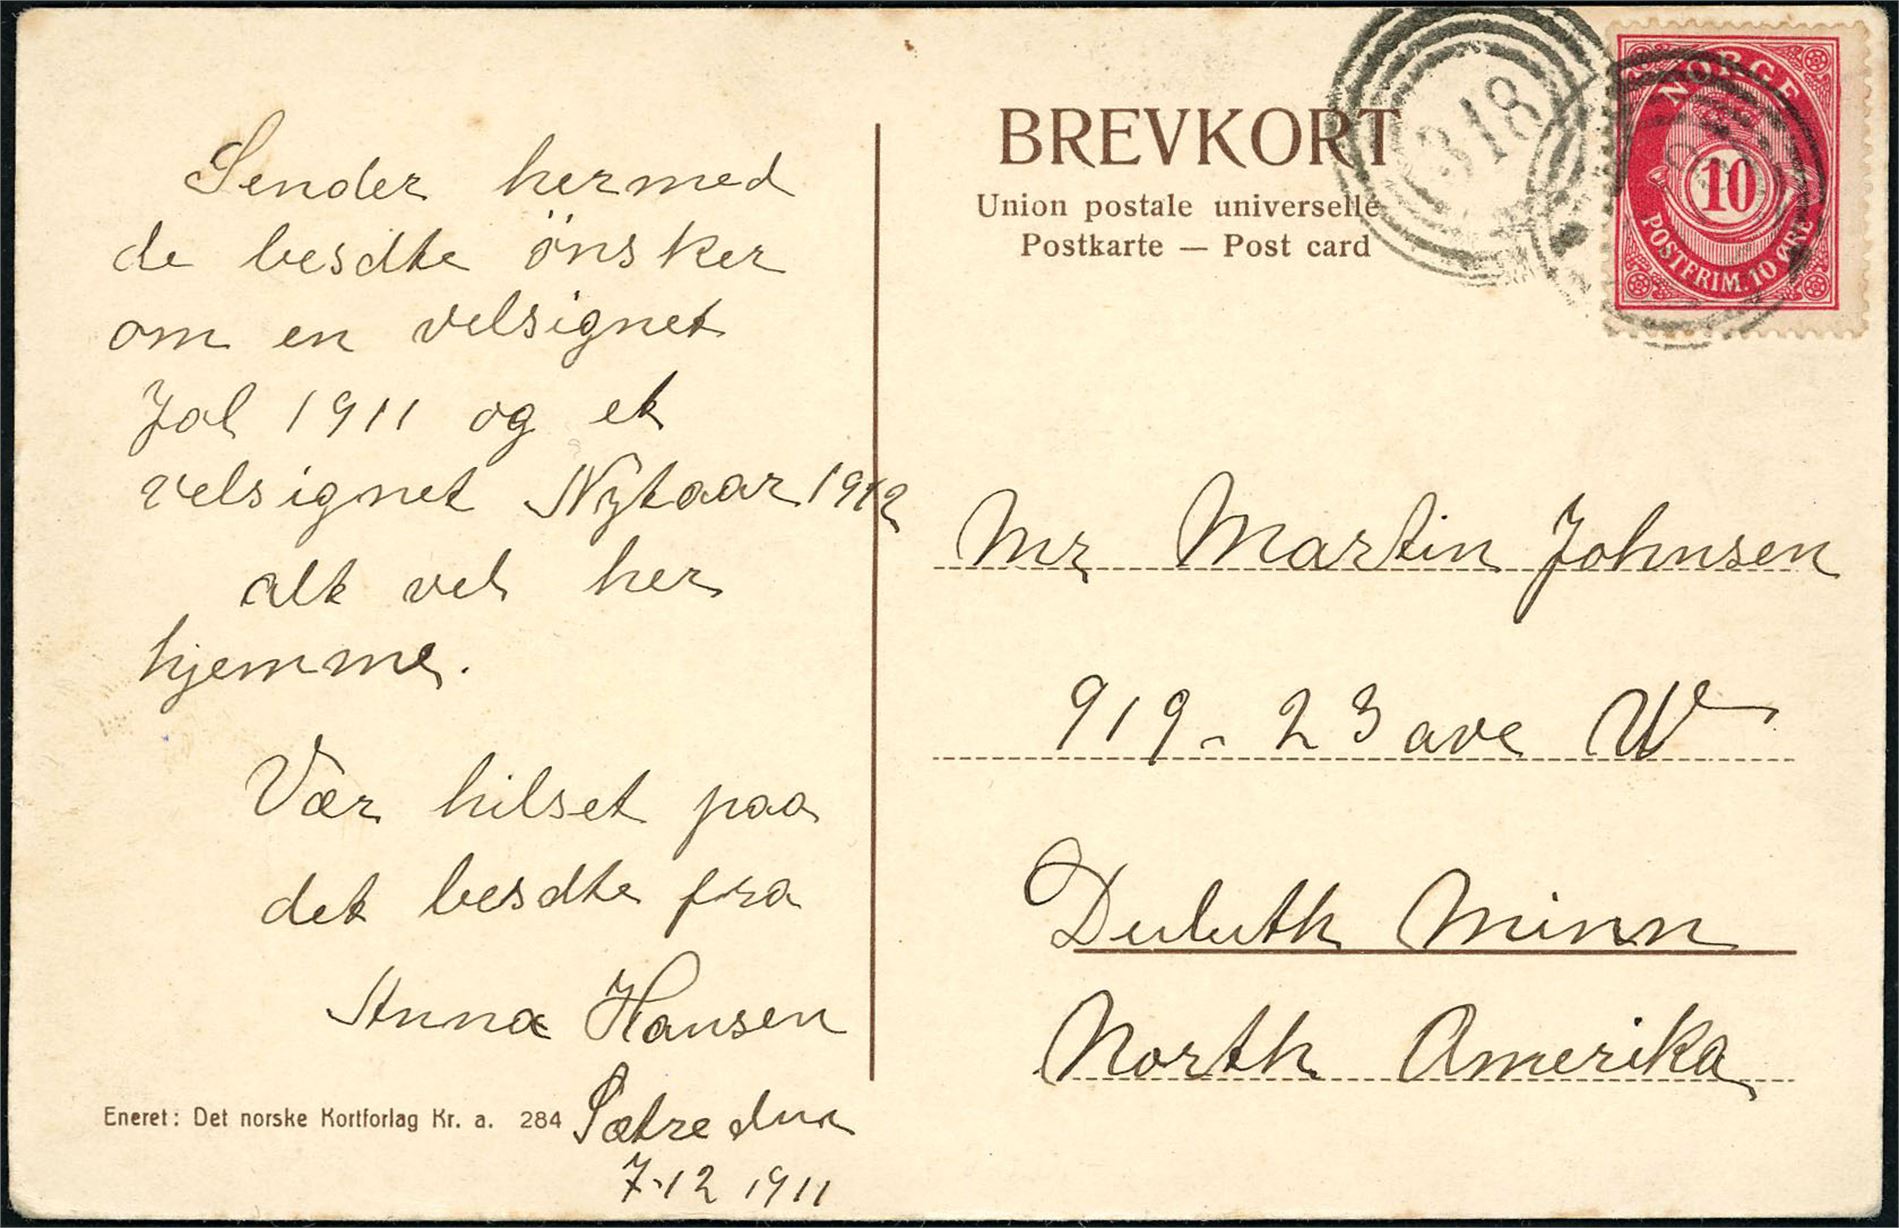 Sender hermed
de besdte önsker
om en velsignet
Jol 1911 og et
velsignet Nytaar 1912
alt vel her
hjemme.
Vær hilset paa
det besdte fra
Anna Hansen
Sætre
7-12 1911
Eneret: Det norske Kortforlag Kr. a. 284
BREVKORT
Union postale universelle
Postkarte — Post card
318
NORGE
10
POSTFRIM. 10 ØRE
Mr Martin Johnsen
919 - 23 ave W
Duluth Minn
North Amerika